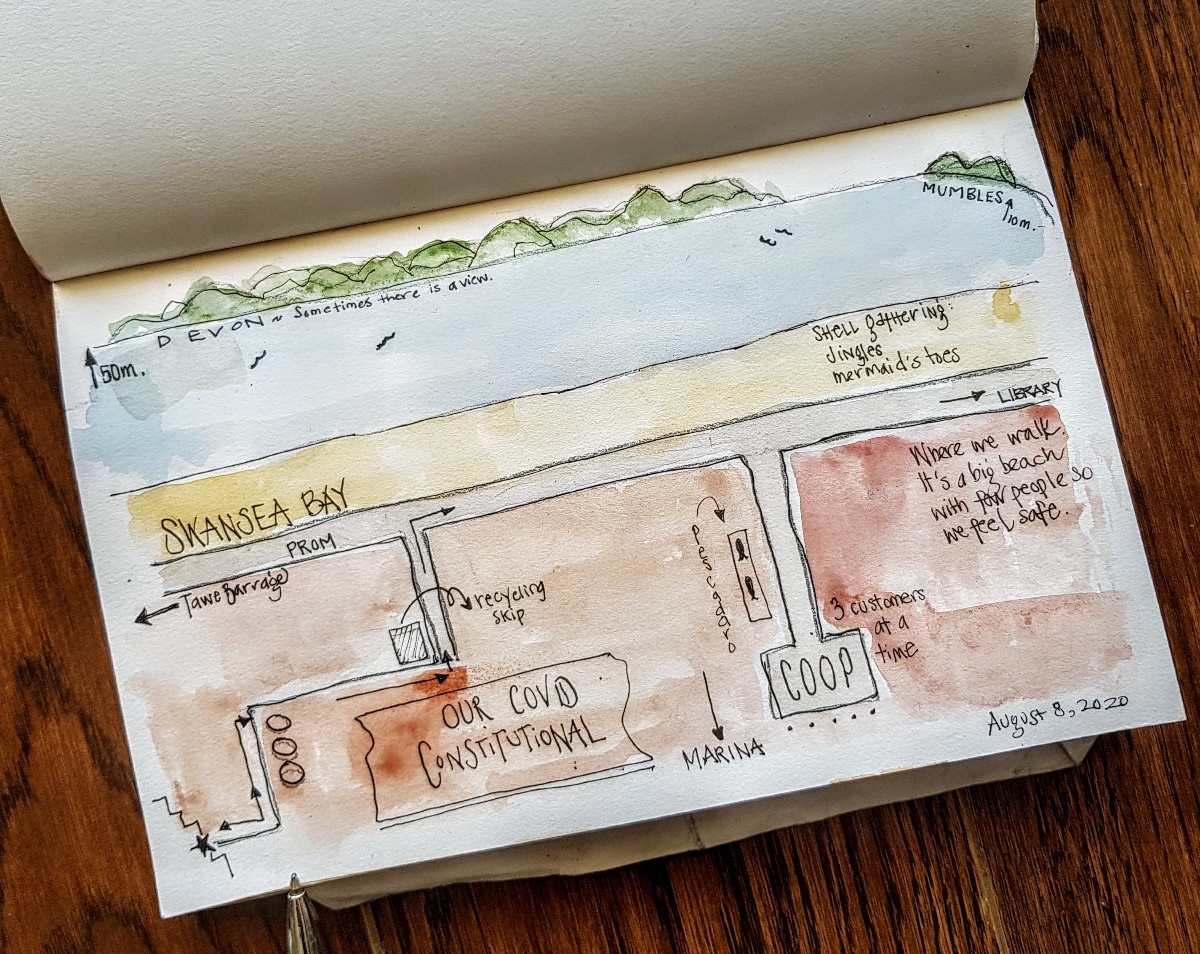 MUMBLES
10m.
DEVON ~ Sometimes there is a view.
50m.
Shell gathering:
Jingles
mermaid's toes
LIBRARY
SWANSEA BAY
PROM
Where we walk.
It's a big beach
with few people so
we feel safe.
Tawe Barrage
recycling
skip
pescadaro
3 customers
at a
time
COOP
OUR COVID
CONSTITUTIONAL
MARINA
August 8, 2020